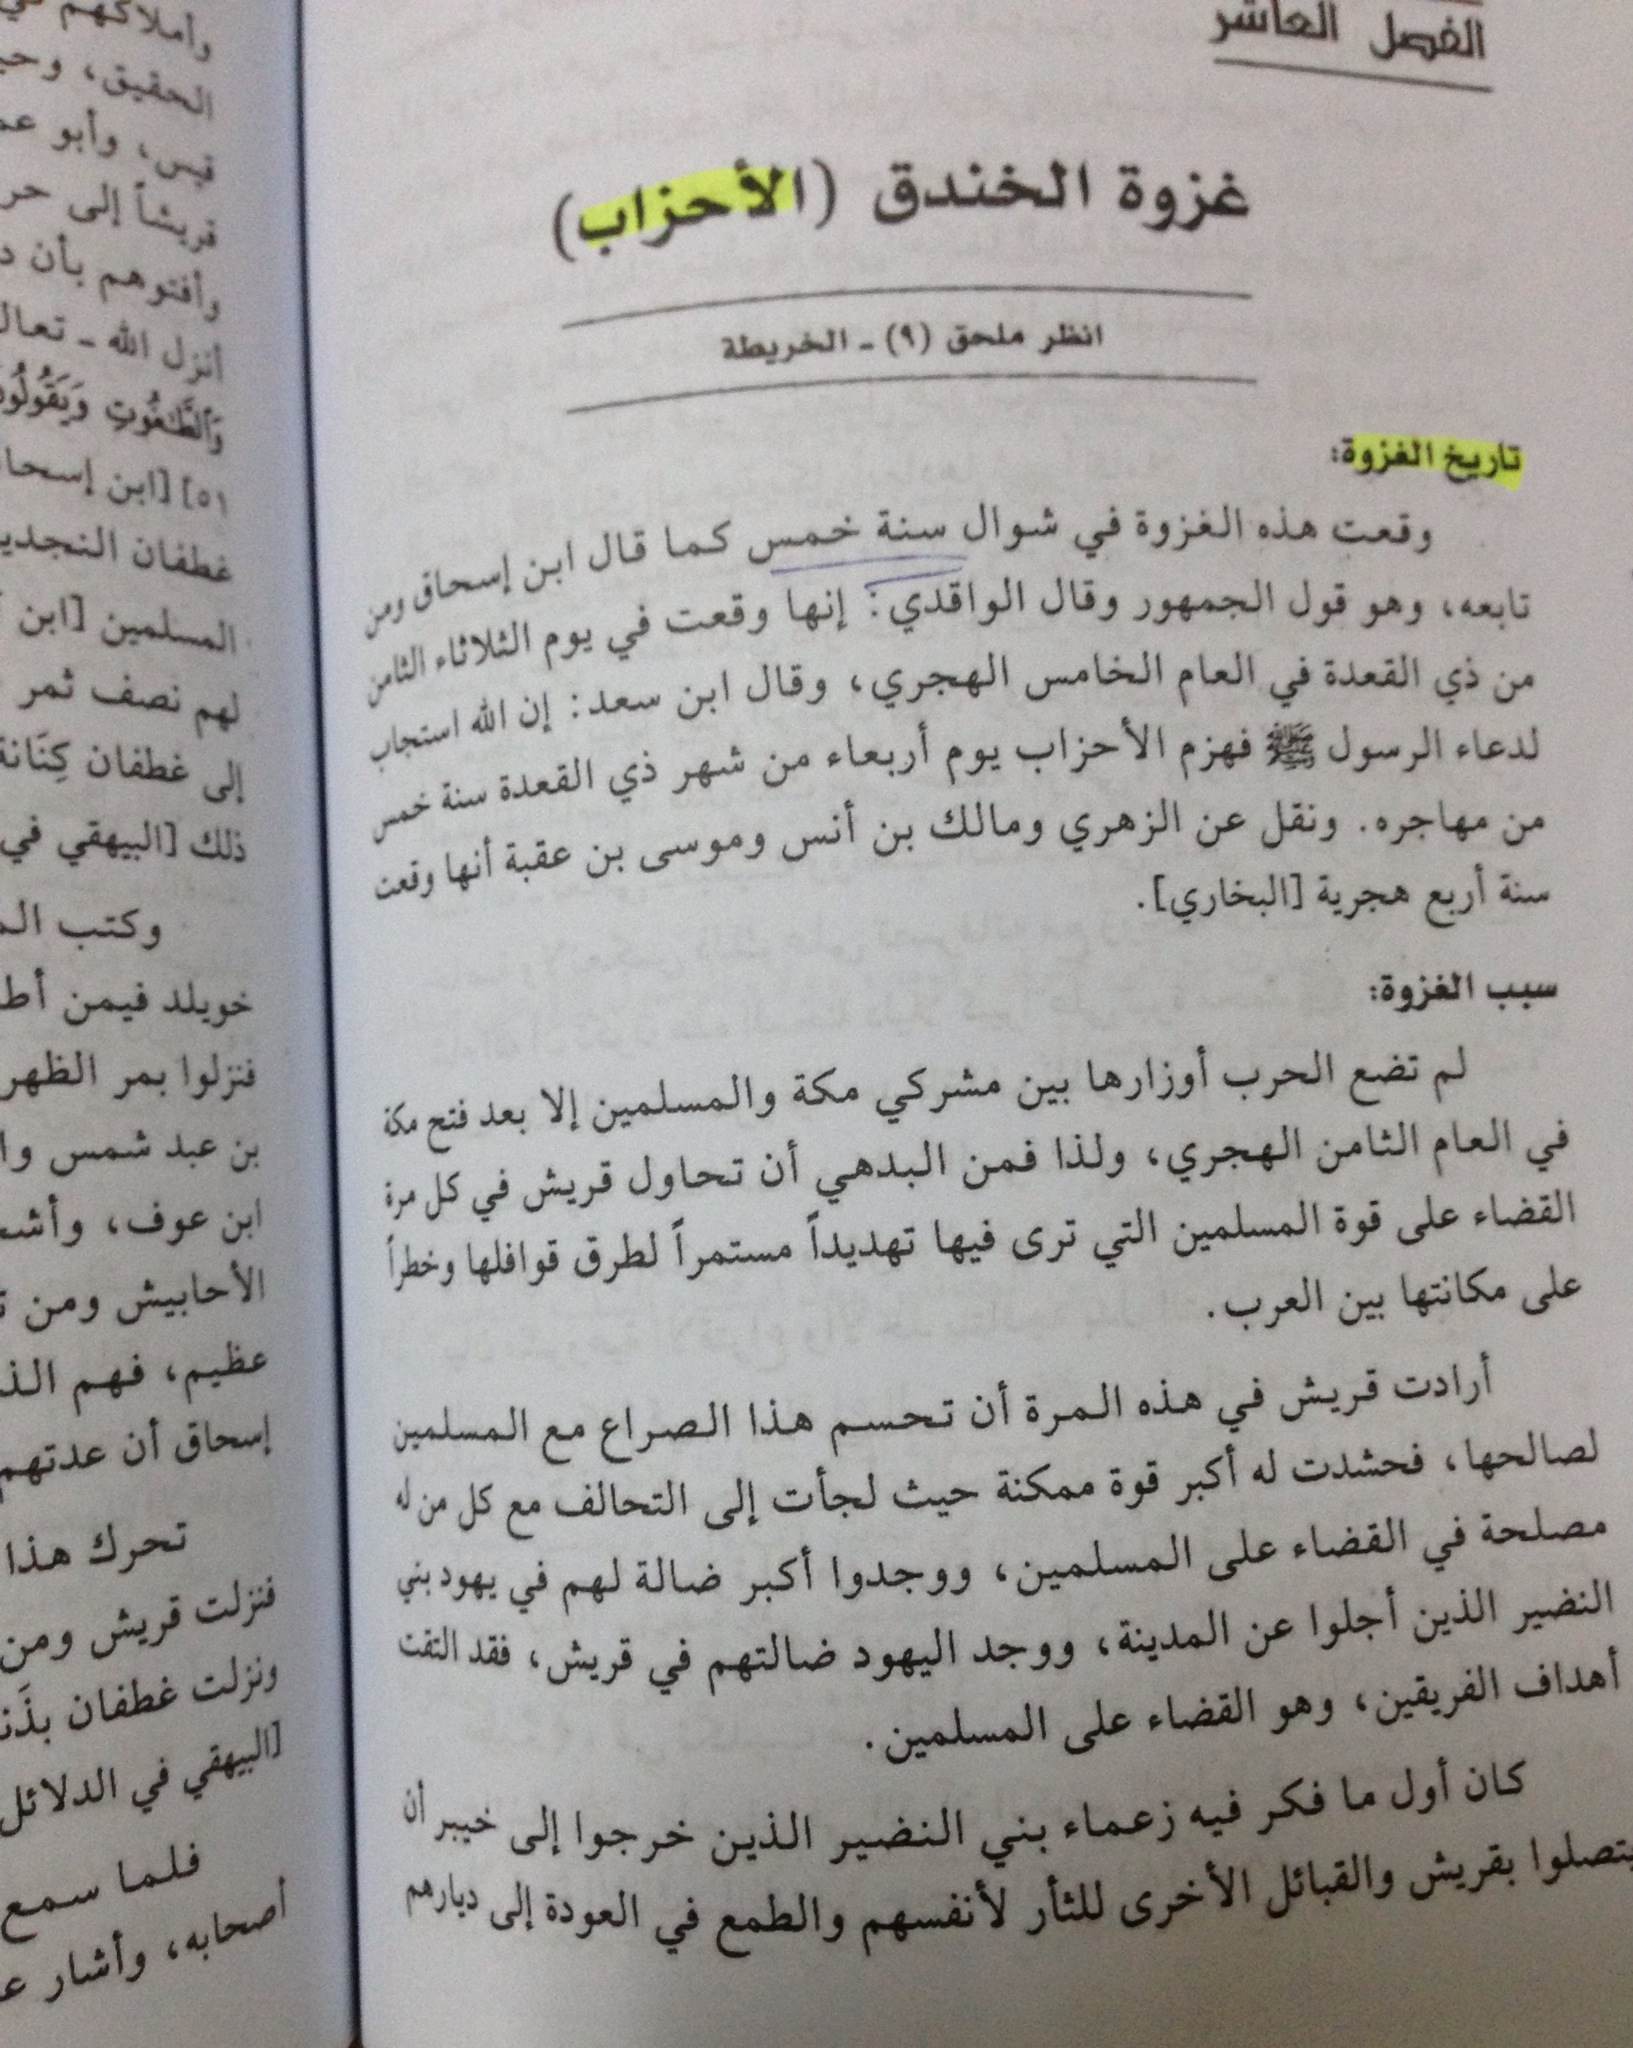 الفصل العاشر
غزوة الخندق (الأحزاب)
انظر ملحق (٩) ـ الخريطة
تاريخ الغزوة:
وقعت هذه الغزوة في شوال سنة خمس كما قال ابن إسحاق ومن
تابعه، وهو قول الجمهور وقال الواقدي: إنها وقعت في يوم الثلاثاء الثامن
من ذي القعدة في العام الخامس الهجري، وقال ابن سعد: إن الله استجاب
لدعاء الرسول ﷺ فهزم الأحزاب يوم أربعاء من شهر ذي القعدة سنة خمس
من مهاجره. ونقل عن الزهري ومالك بن أنس وموسى بن عقبة أنها وقعت
سنة أربع هجرية [البخاري].
سبب الغزوة:
لم تضع الحرب أوزارها بين مشركي مكة والمسلمين إلا بعد فتح مكة
في العام الثامن الهجري، ولذا فمن البدهي أن تحاول قريش في كل مرة
القضاء على قوة المسلمين التي ترى فيها تهديداً مستمراً لطرق قوافلها وخطراً
على مكانتها بين العرب.
أرادت قريش في هذه المرة أن تحسم هذا الصراع مع المسلمين
لصالحها، فحشدت له أكبر قوة ممكنة حيث لجأت إلى التحالف مع كل من له
مصلحة في القضاء على المسلمين، ووجدوا أكبر ضالة لهم في يهود بني
النضير الذين أجلوا عن المدينة، ووجد اليهود ضالتهم في قريش، فقد التقت
أهداف الفريقين، وهو القضاء على المسلمين.
كان أول ما فكر فيه زعماء بني النضير الذين خرجوا إلى خيبر أن
يتصلوا بقريش والقبائل الأخرى للثأر لأنفسهم والطمع في العودة إلى ديارهم
وأملاكهم في
الحقيق، وحي
قيس، وأبو عم
قريشاً إلى حر
وأفتوهم بأن د
أنزل الله ـ تعال
وَٱلطَّٰغُوتِ وَيَقُولُو
٥١] [ابن إسحا
غطفان النجدي
المسلمين [ابن
لهم نصف ثمر
إلى غطفان كِنَانة
ذلك [البيهقي في
وكتب الم
خويلد فيمن أط
فنزلوا بمر الظهر
بن عبد شمس وا
ابن عوف، وأشـ
الأحابيش ومن ت
عظيم، فهم الذ
إسحاق أن عدتهم
تحرك هذا
فنزلت قريش ومن
ونزلت غطفان بذَن
[البيهقي في الدلائل
فلما سمع
أصحابه، وأشار ع